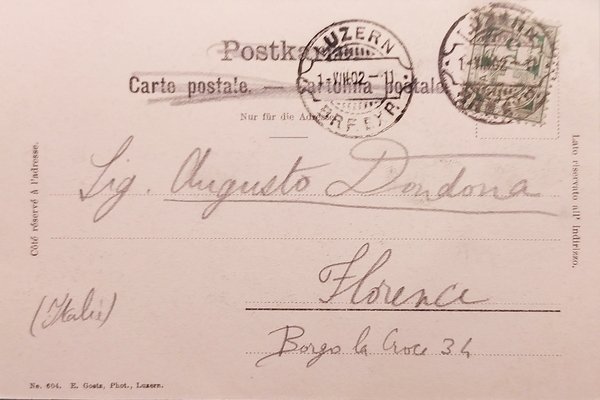 Postkarte
LUZERN
1-VIII.02-11
BRF.EXP.
LUZERN
Carte postale. — Cartolina postale.
Nur für die Adresse.
Côté réservé à l'adresse.
Lato riservato all' indirizzo.
Sig. Augusto Dondona
Florence
(Italie)
Borgo la Croce 34
No. 604. E. Goetz, Phot., Luzern.